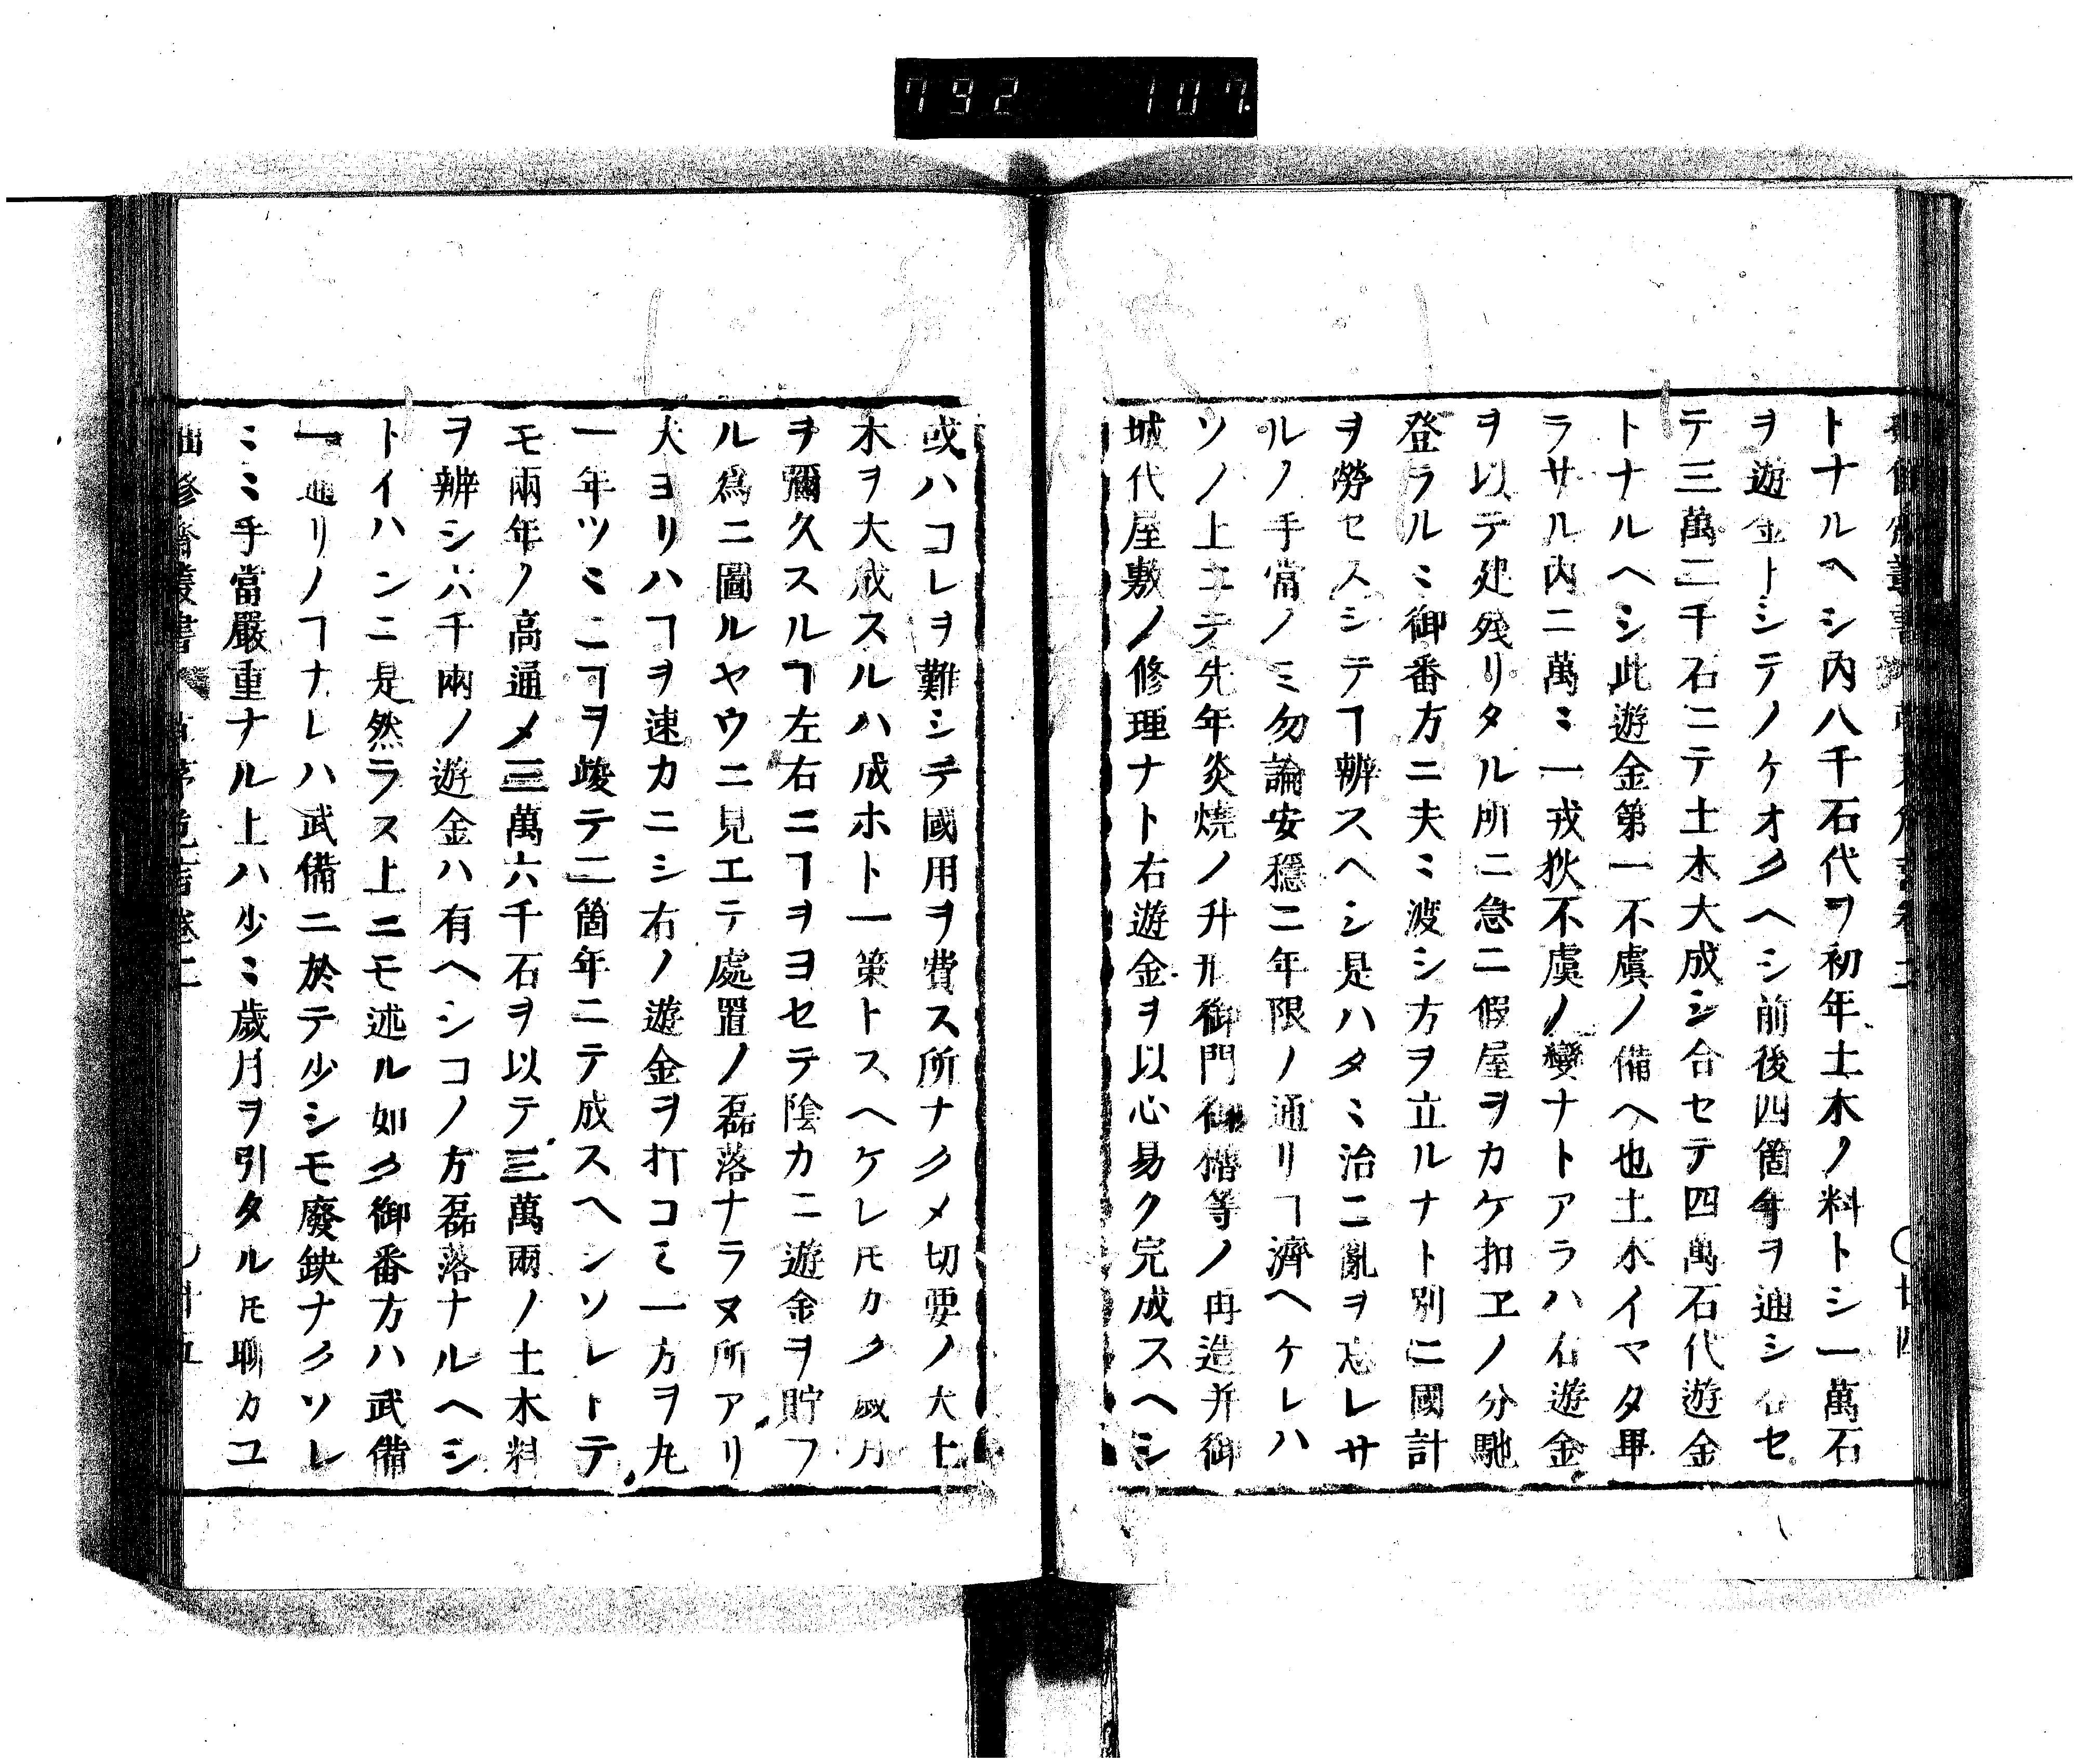 792 107
トナルヘシ内八千石代ヲ初年土木ノ料トシ一萬石
ヲ遊金トシテノケオクヘシ前後四箇年ヲ通シ合セ
テ三萬二千石ニテ土木大成シ合セテ四萬石代遊金
トナルヘシ此遊金第一不虞ノ備ヘ也土木イマタ畢
ラサル内ニ萬ミ一戎狄不虞ノ變ナトアラハ右遊金
ヲ以テ建殘リタル所ニ急ニ假屋ヲカケ扣ヱノ分馳
登ラルミ御番方ニ夫ミ渡シ方ヲ立ルナト別ニ國計
ヲ勞セスシテヿ辨スヘシ是ハタミ治ニ亂ヲ忘レサ
ルノ手當ノミ勿論安穩ニ年限ノ通リヿ濟ヘケレハ
ソノ上ニテ先年炎燒ノ升形御門御櫓等ノ再造并御
城代屋敷ノ修理ナト右遊金ヲ以心易ク完成スヘシ
或ハコレヲ難シテ國用ヲ費ス所ナクメ切要ノ大土
木ヲ大成スルハ成ホト一策トスヘケレ𪜈カク歲月
ヲ彌久スルヿ左右ニヿヲヨセテ陰カニ遊金ヲ貯フ
ル爲ニ圖ルヤウニ見エテ處置ノ磊落ナラヌ所アリ
夫ヨリハヿヲ速カニシ右ノ遊金ヲ打コミ一方ヲ凡
一年ツミニヿヲ竣テ二箇年ニテ成スヘシソレトテ
モ兩年ノ高通メ三萬六千石ヲ以テ三萬兩ノ土木料
ヲ辨シ六千兩ノ遊金ハ有ヘシコノ方磊落ナルヘシ
トイハンニ是然ラス上ニモ述ル如ク御番方ハ武備
一通リノヿナレハ武備ニ於テ少シモ廢缺ナクソレ
ミミ手當嚴重ナル上ハ少ミ歲月ヲ引タル𪜈聊カユ